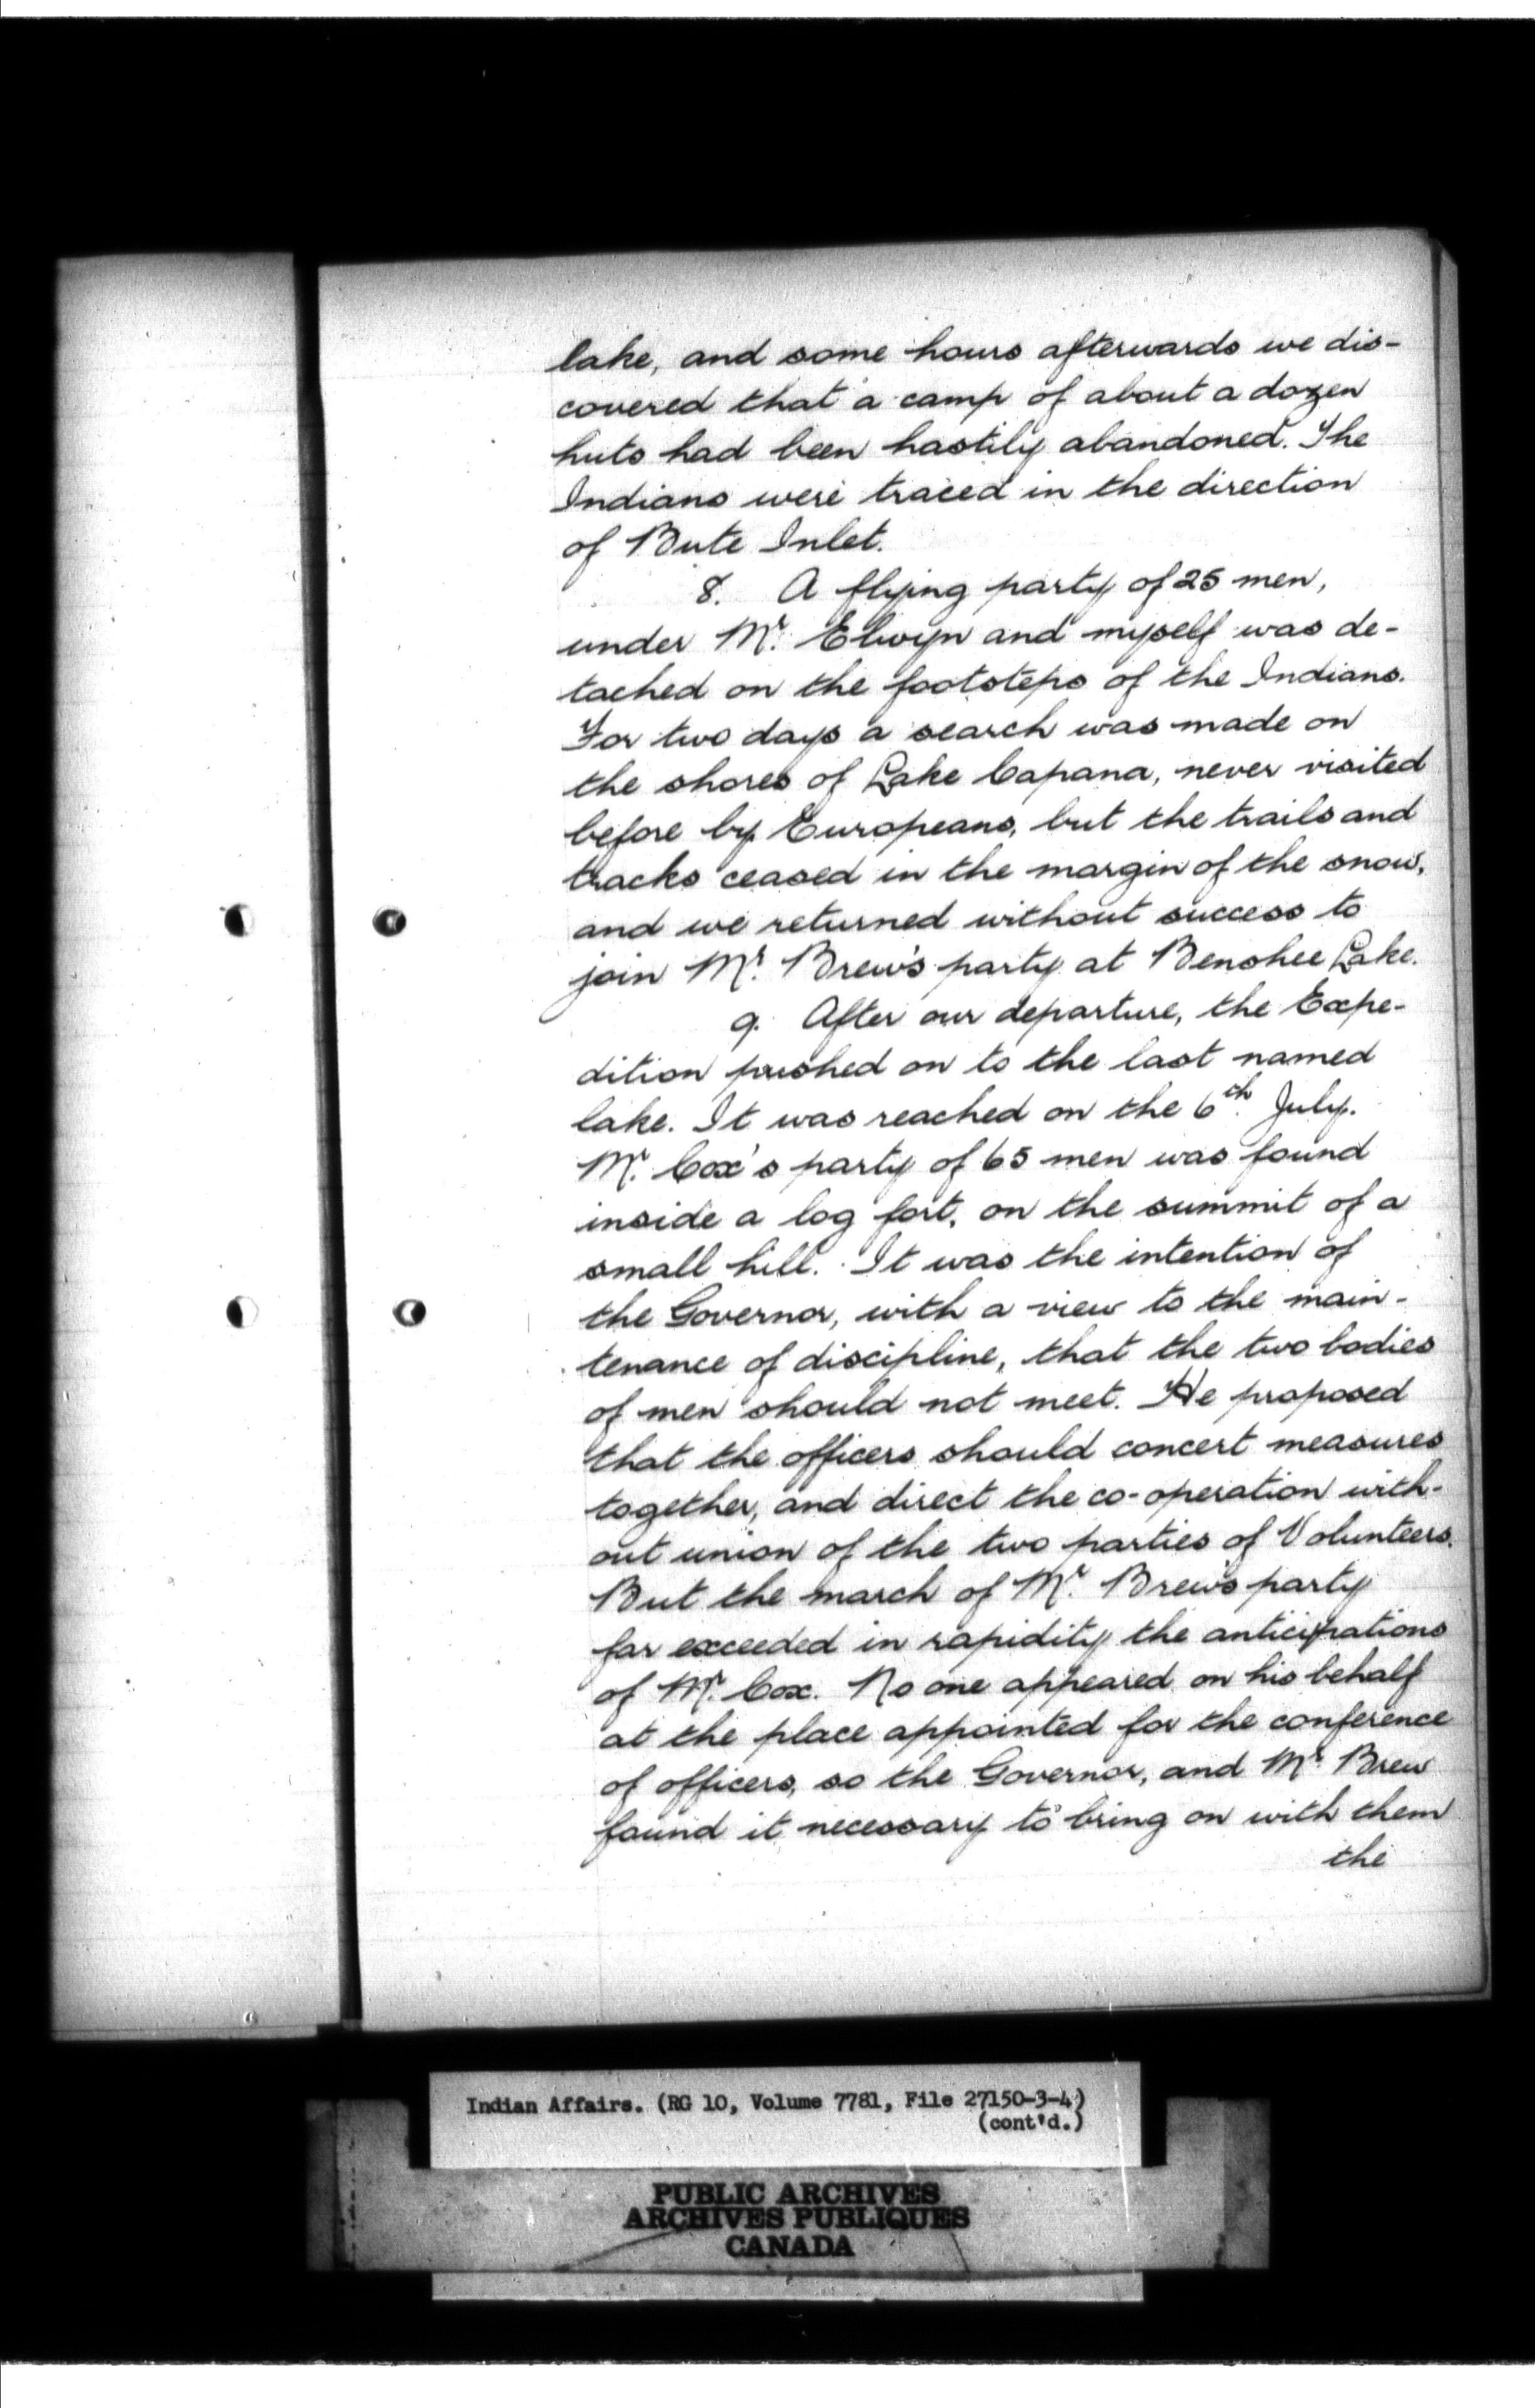 lake, and some hours afterwards we dis-
covered that a camp of about a dozen
huts had been hastily abandoned. The
Indians were traced in the direction
of Bute Inlet.
8. A flying party of 25 men,
under Mr. Elwyn and myself was de-
tached on the footsteps of the Indians.
For two days a search was made on
the shores of Lake Capana, never visited
before by Europeans, but the trails and
tracks ceased in the margin of the snow,
and we returned without success to
join Mr. Brew's party at Benshee Lake.
9. After our departure, the Expe-
dition pushed on to the last named
lake. It was reached on the 6th. July.
Mr. Cox's party of 65 men was found
inside a log fort, on the summit of a
small hill. It was the intention of
the Governor, with a view to the main-
tenance of discipline, that the two bodies
of men should not meet. He proposed
that the officers should concert measures
together, and direct the co-operation with-
out union of the two parties of Volunteers.
But the march of Mr. Brew's party
far exceeded in rapidity the anticipations
of Mr. Cox. No one appeared on his behalf
at the place appointed for the conference
of officers, so the Governor, and Mr Brew
found it necessary to bring on with them
the
Indian Affairs. (RG 10, Volume 7781, File 27150-3-4)
(cont'd.)
PUBLIC ARCHIVES
ARCHIVES PUBLIQUES
CANADA